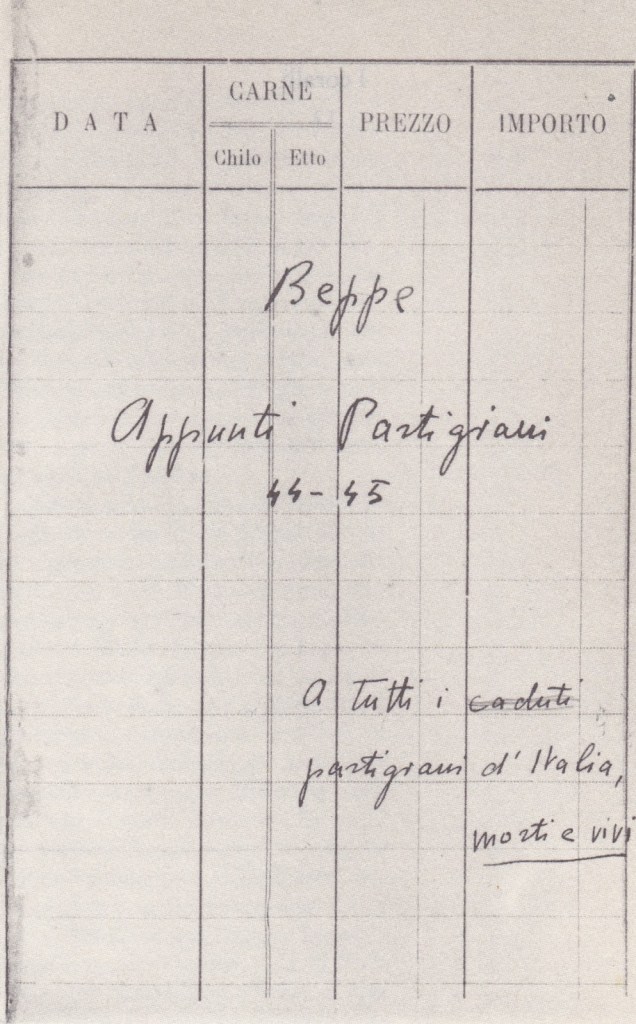 DATA CARNE PREZZO IMPORTO
Chilo Etto
Beppe
Appunti Partigiani
44-45
A tutti i caduti
partigiani d'Italia,
morti e vivi